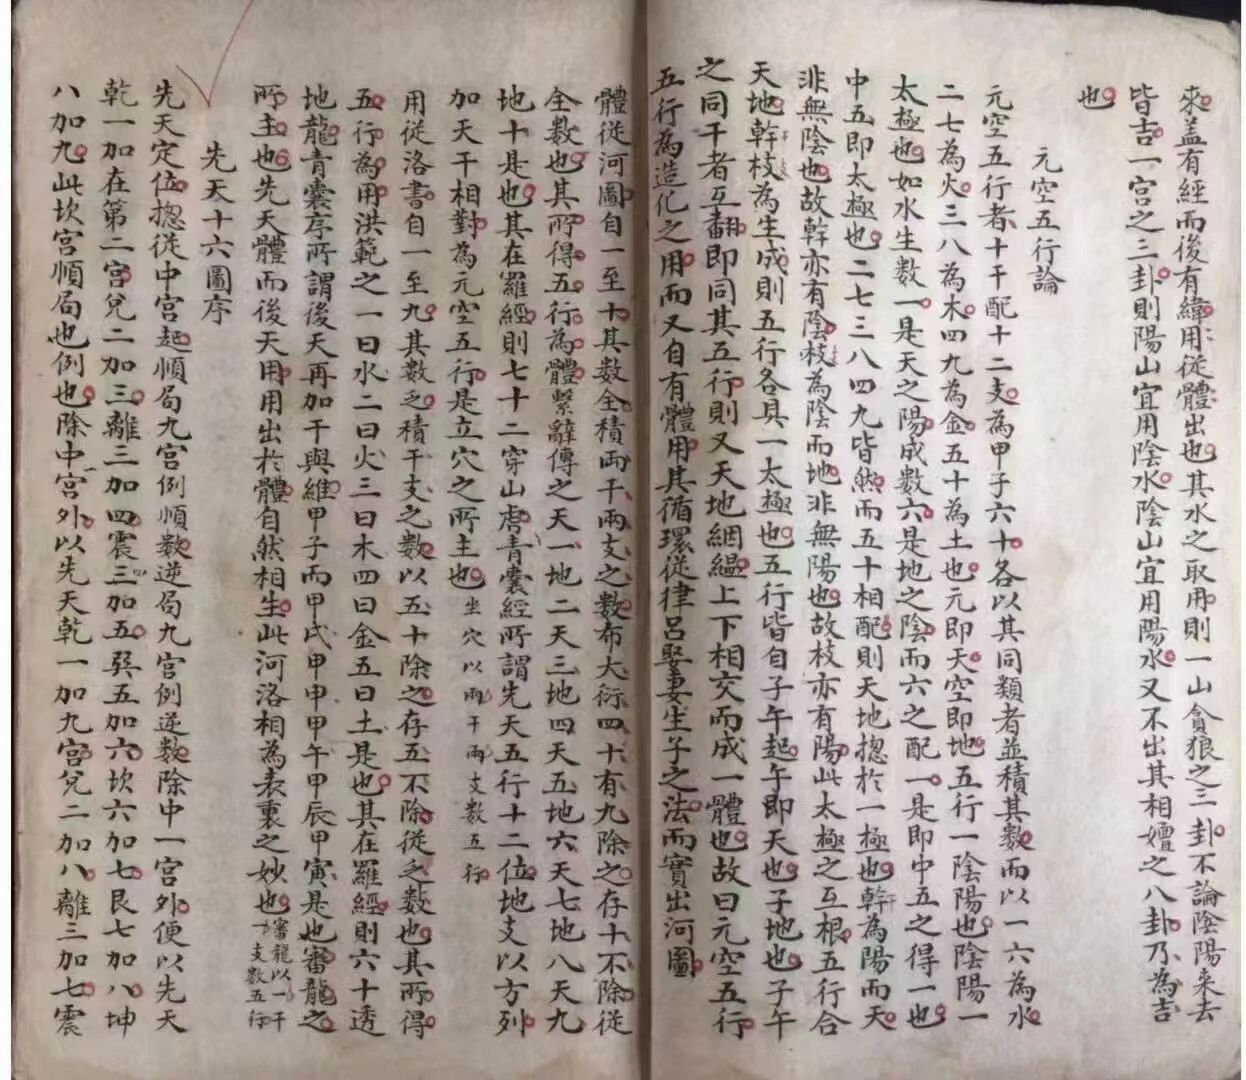 來盖有經而後有緯用従體出也其水之取用則一山貪狼之三卦不論陰陽来去
皆吉一宮之三卦則陽山宜用陰水陰山宜用陽水又不出其相嬗之八卦乃為吉
也
元空五行論
元空五行者十干配十二支為甲子六十各以其同類者並積其數而以一六為水
二七為火三八為木四九為金五十為土也元即天空即地五行一陰陽也陰陽一
太極也如水生數一是天之陽成數六是地之陰而六之配一是即中五之得一也
中五即太極也二七三八四九皆然而五十相配則天地揔於一極也幹為陽而天
非無陰也故幹亦有陰枝為陰而地非無陽也故枝亦有陽此太極之互根五行合
天地幹枝為生成則五行各具一太極也五行皆自子午起午即天也子地也子午
之同干者互翻即同其五行則又天地絪縕上下相交而成一體也故曰元空五行
五行為造化之用而又自有體用其循環従律呂娶妻生子之法而實出河圖
體從河圖自一至十其數全積両干兩支之數布大衍四十有九除之存十不除從
全數也其所得五行為體繫辭傳之天一地二天三地四天五地六天七地八天九
地十是也其在羅經則七十二穿山虎青囊經所謂先天五行十二位地支以方列
加天干相對為元空五行是立穴之所主也 坐穴以兩干兩支數五行
用從洛書自一至九其數乏積干支之數以五十除之存五不除從乏數也其所得
五行為用洪範之一曰水二曰火三曰木四曰金五曰土是也其在羅經則六十透
地龍青囊序所謂後天再加干與維甲子而甲戌甲申甲午甲辰甲寅是也審龍之
所主也先天體而後天用用出於體自然相生此河洛相為表裏之妙也 審龍以一干一支數五行
先天十六圖序
先天定位揔從中宮起順局九宮例順數逆局九宮例逆數除中一宮外便以先天
乾一加在第二宮兌二加三離三加四震三加五巽五加六坎六加七艮七加八坤
八加九此坎宮順局也例也除中宮外以先天乾一加九宮兌二加八離三加七震